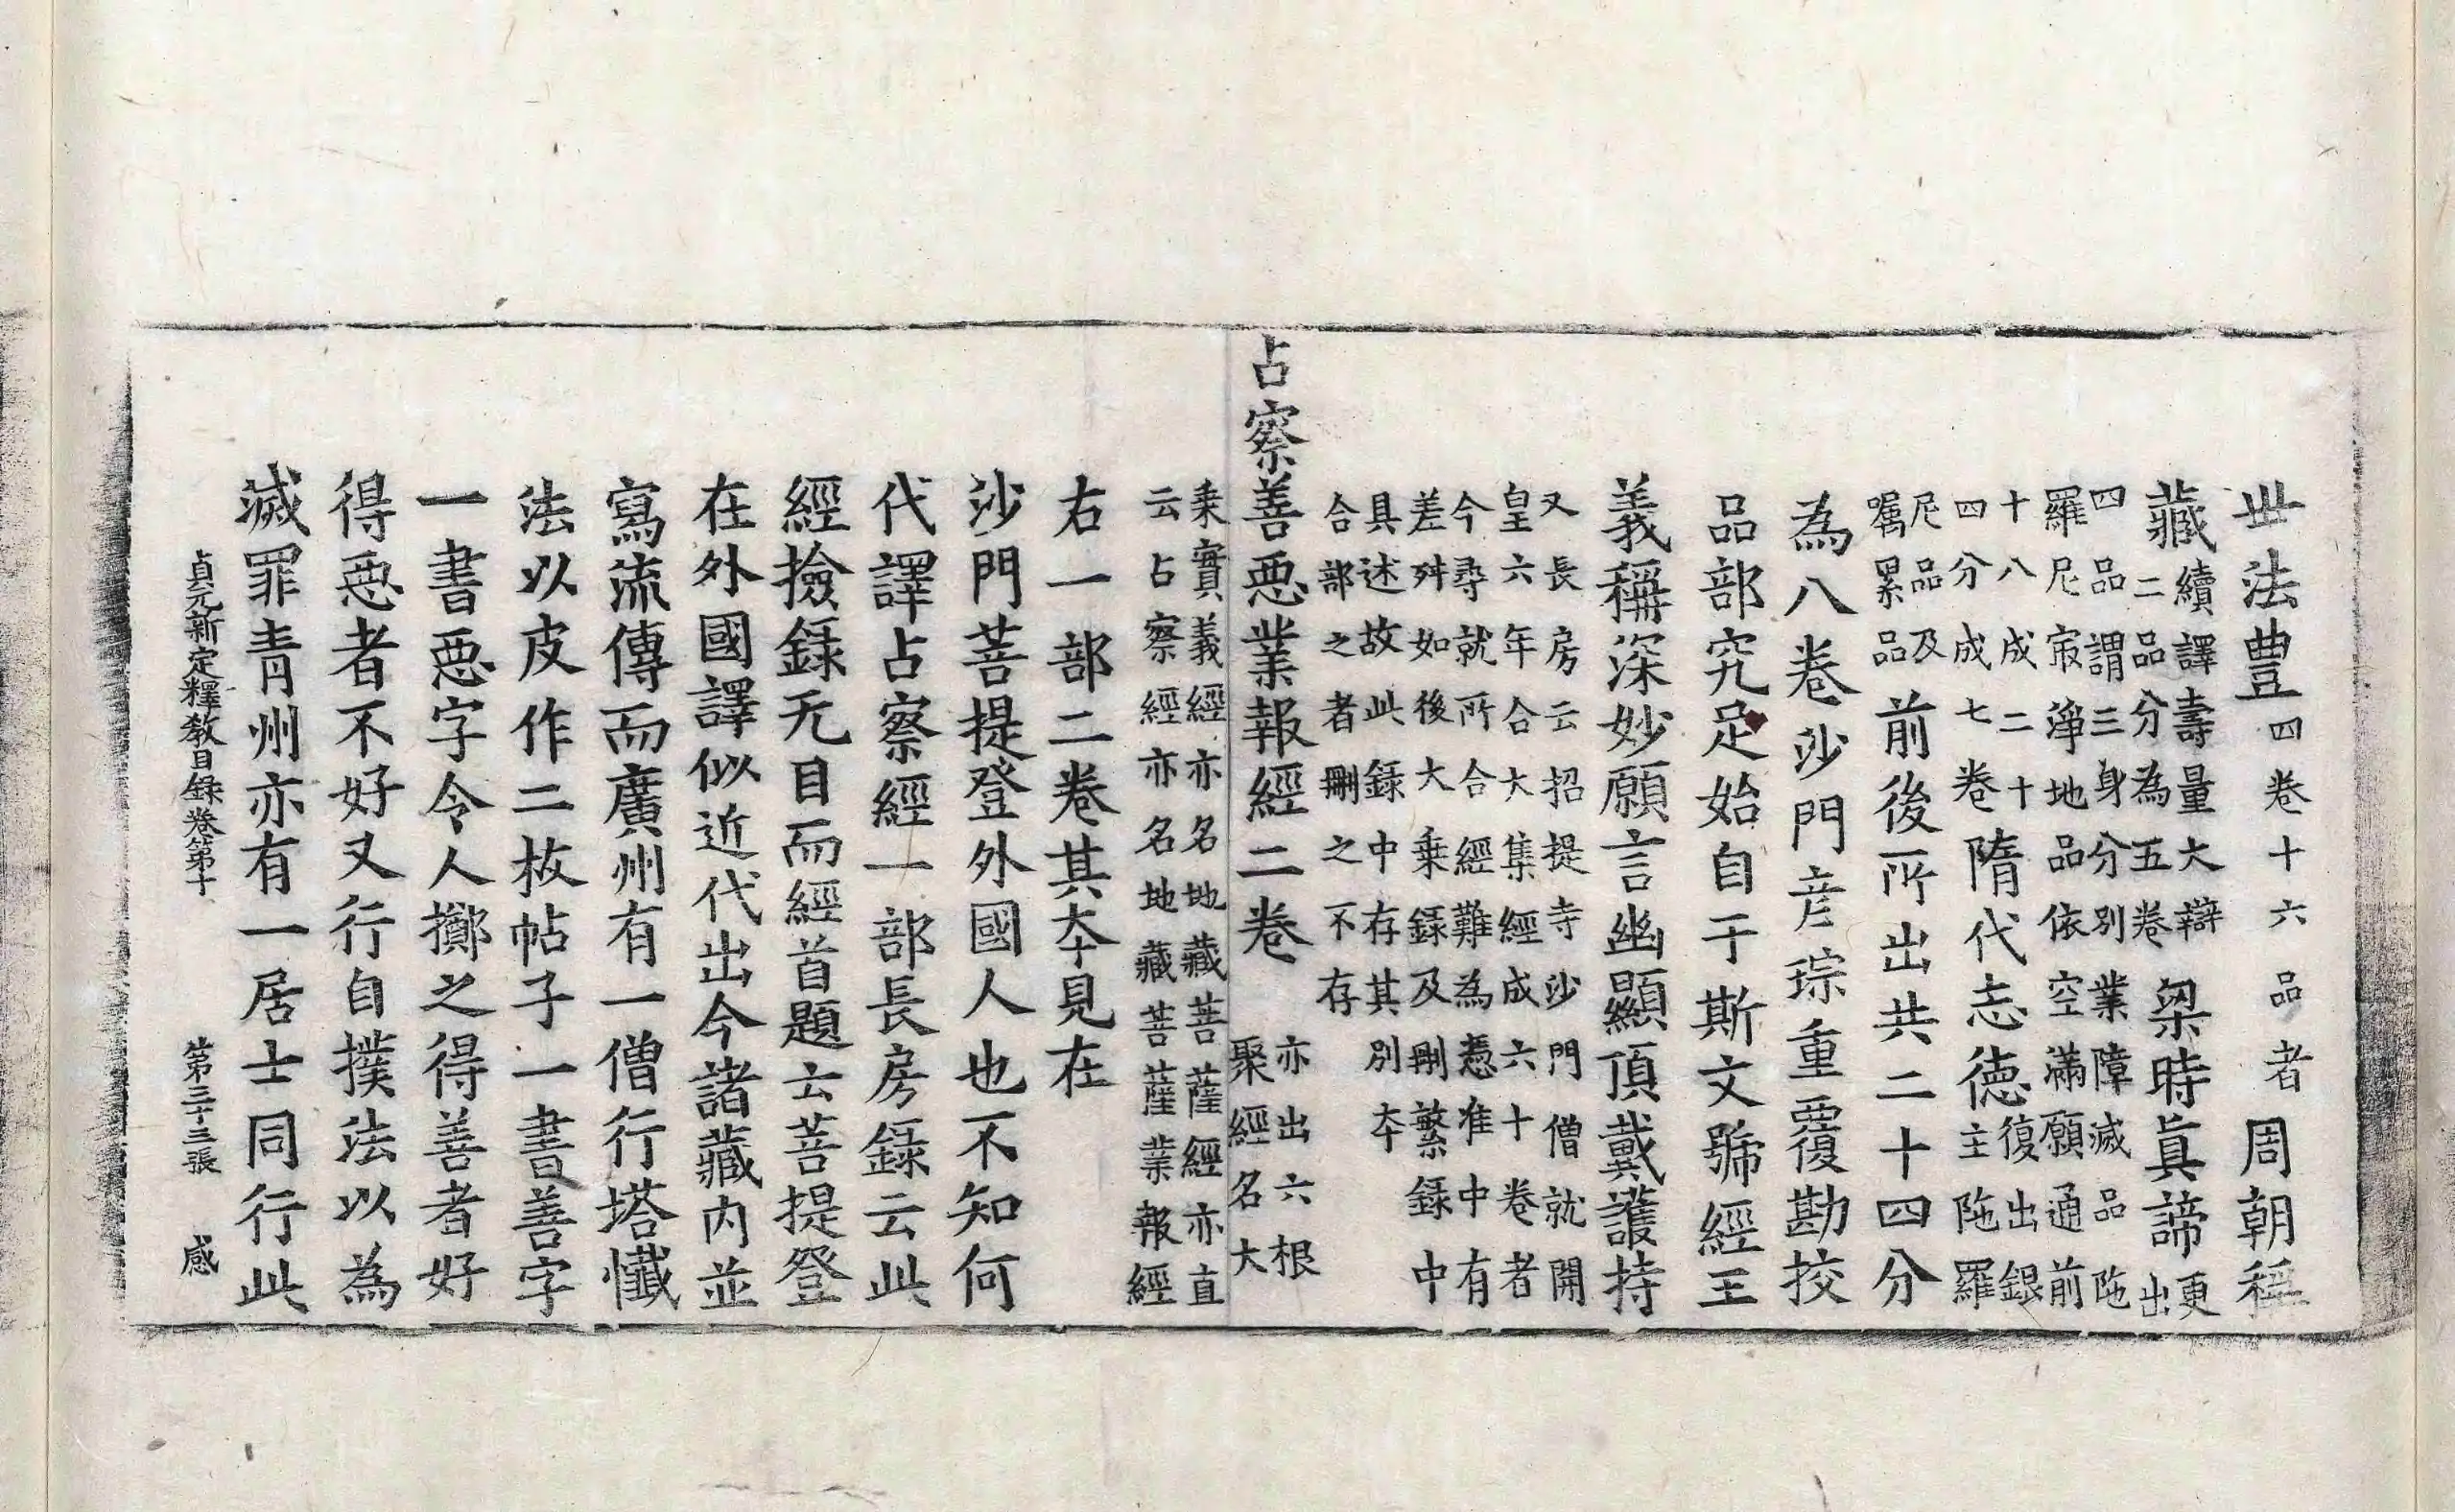 丗法豊四卷十六品者周朝稱
藏續譯壽量大辯二品分為五卷梁時真諦更出
四品謂三身分別業障滅品陁羅尼㝡淨地品依空滿願通前
十八成二十四分成七卷隋代志德復出銀主陁羅
尼品及囑累品前後所出共二十四分
為八卷沙門彦琮重覆勘挍
品部究足始自于斯文號經王
義稱深妙願言幽顯頂戴護持
又長房云招提寺沙門僧就開皇六年合大集經成六十卷者
今尋就所合經難為憑准中有差舛如後大乗録及刪繁録中
具述故此録中存其別夲合部之者刪之不存
占察善惡業報經二卷亦出六根聚經名大
乗實義經亦名地藏菩薩經亦直云占察經亦名地藏菩薩業報經
右一部二卷其夲見在
沙門菩提登外國人也不知何
代譯占察經一部長房録云此
經撿録无目而經首題云菩提登
在外國譯似近代出今諸藏内並
寫流傳而廣州有一僧行塔懺
法以皮作二枚帖子一書善字
一書惡字令人擲之得善者好
得惡者不好又行自撲法以為
滅罪青州亦有一居士同行此
貞元新定釋教目録卷第十 第三十三張 感